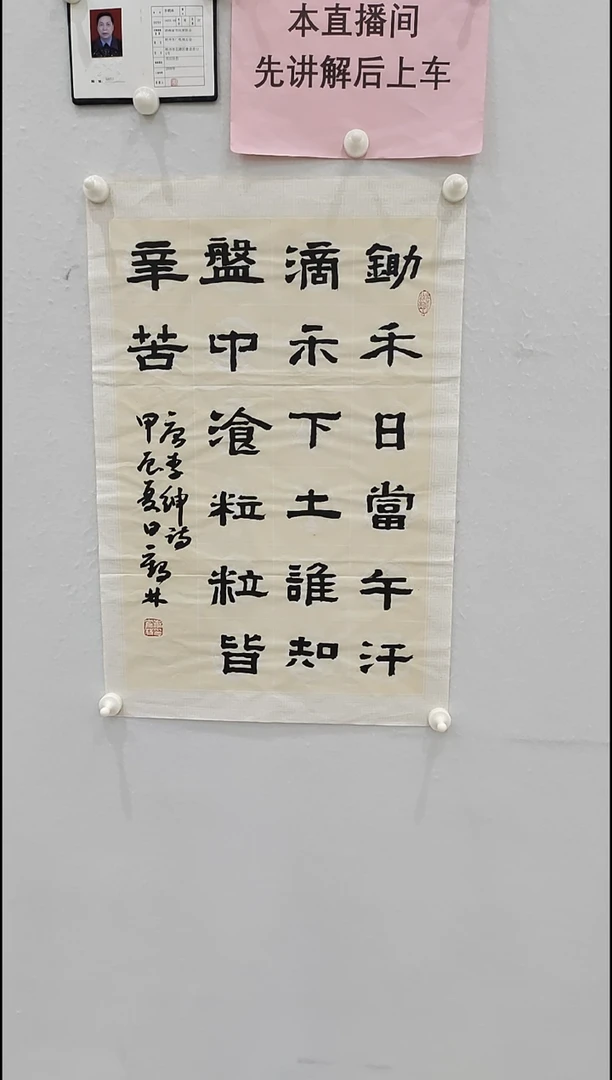 本直播间
先讲解后上车
鋤禾日當午汗
滴禾下土誰知
盤中湌粒粒皆
辛苦
唐李紳诗
甲辰夏日鶴林